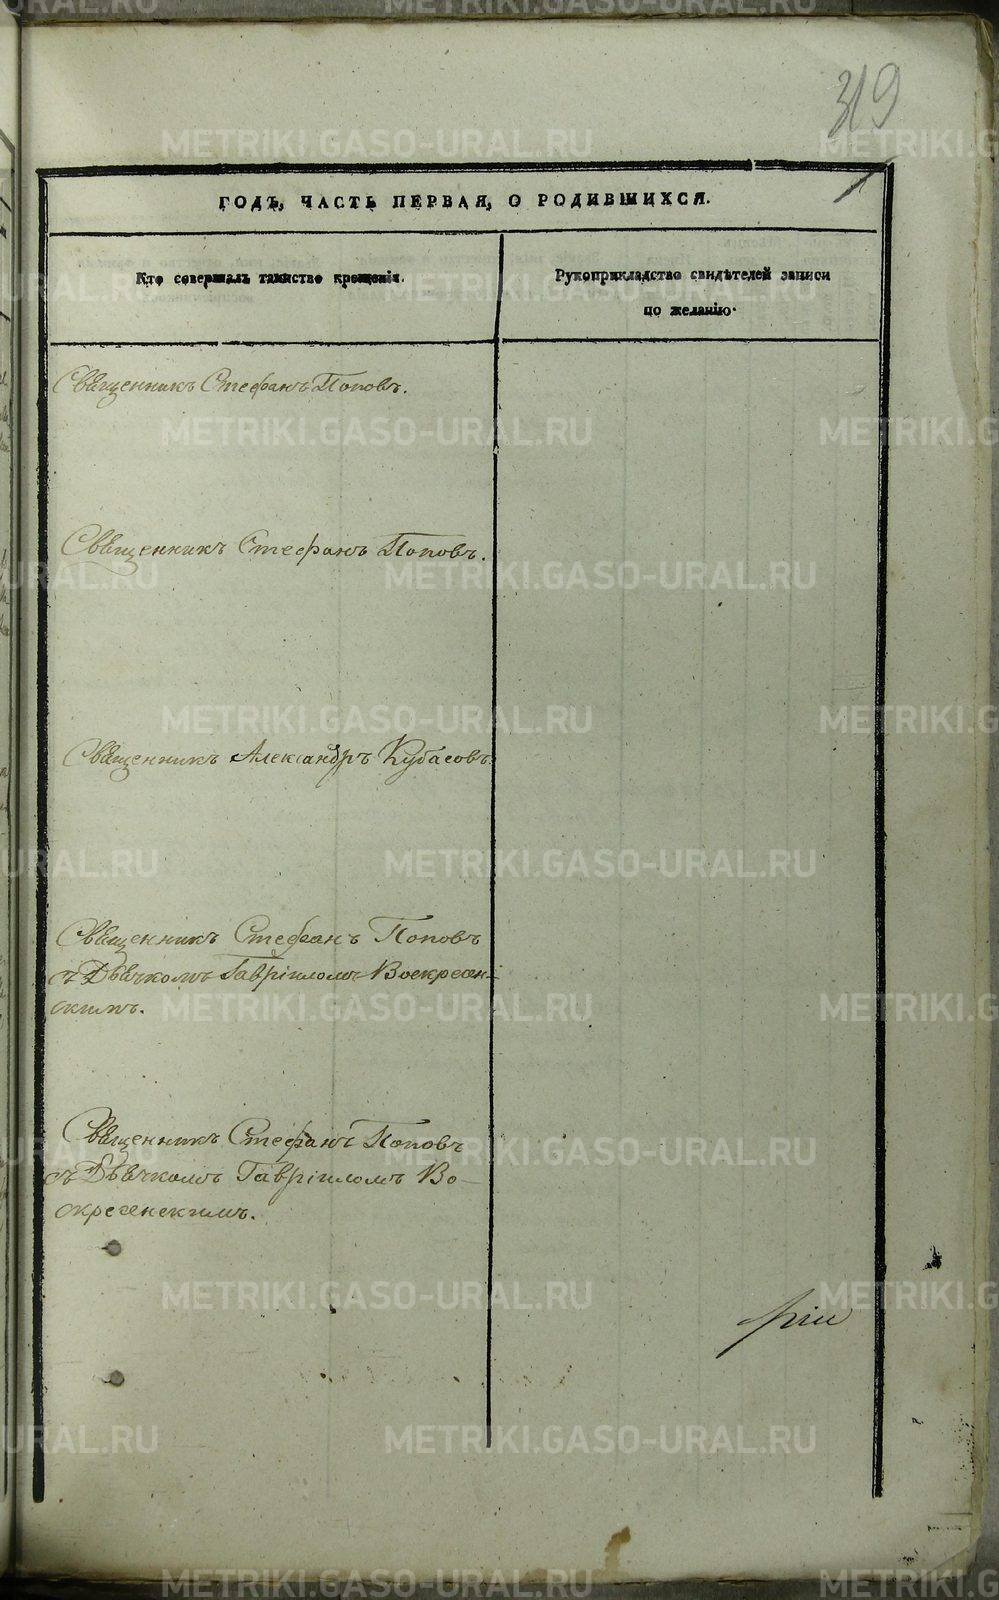 319
ГОДЪ, ЧАСТЬ ПЕРВАЯ, О РОДИВШИХСЯ.
Кто совершалъ таинство крещенія.
Рукоприкладство свидѣтелей записи
по желанію.
Священникъ Стефанъ Поповъ.
Священникъ Стефанъ Поповъ.
Священникъ Александръ Кубасовъ.
Священникъ Стефанъ Поповъ
съ Дьячкомъ Гавріиломъ Воскресен-
скимъ.
Священникъ Стефанъ Поповъ
съ Дьячкомъ Гавріиломъ Во-
скресенскимъ.
METRIKI.GASO-URAL.RU